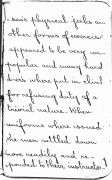 ness physical jerks or
other forms of exercise
appeared to be very un-
popular and many hard
were put in clink
for refusing duty of a
trivial nature. When
uniforms where issued
the men settled down
more readily and re-
ponded to their instructo